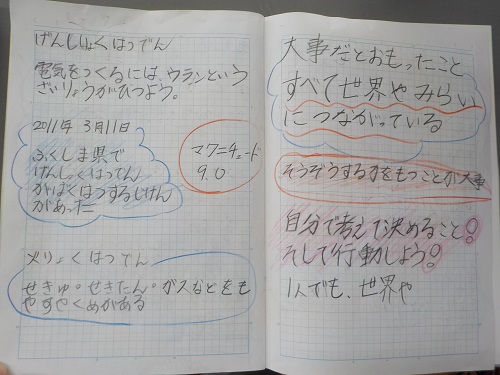 げんしりょくはつでん
電気をつくるには、ウランという
ざいりょうがひつよう。
2011年 3月11日
ふくしま県で
げんしっくはってん
がばくはつするじけん
があった
マグニチュード
9.0
メりょくはつでん
せきゅ。せきたん。ガスなどをも
やすやくめがある
大事だとおもったこと
すべて世界やみらい
につながっている
そうぞうする力をもつことが大事
自分で考えて決めること!
そして行動しよう!
1人でも、世界や